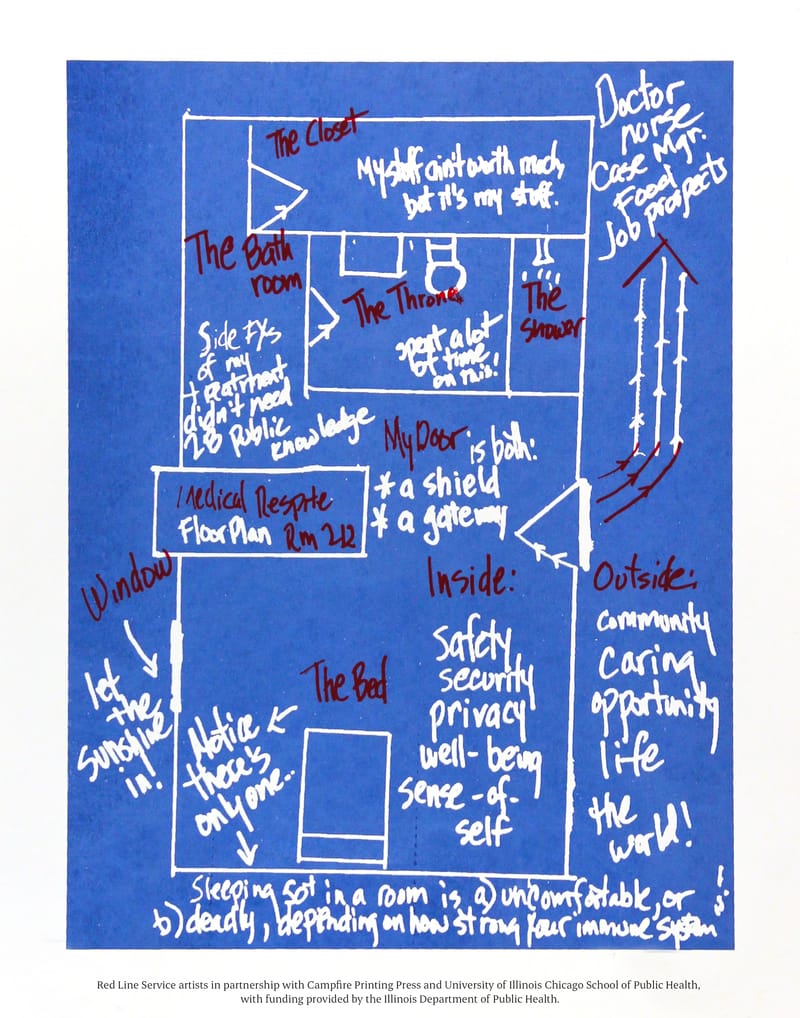 The Closet
My stuff ain't worth much,
but it's my stuff.
Doctor
nurse
Case Mgr.
Food
Job prospects
The Bath
room
The Throne
The
Shower
Side FXs
of my
treatment
didn't need
2B Public
knowledge
spent a lot
of time
on this!
My Door is both:
* a shield
* a gateway
Medical Respite
Floor Plan Rm 212
Window
let
the
sunshine
in!
Inside:
safety
security
privacy
well-being
sense-of-
self
Outside:
community
caring
opportunity
life
the
world!
The Bed
Notice
there's
only one..
Sleeping 8 in a room is a) uncomfortable, or
b) deadly, depending on how strong your immune system
Red Line Service artists in partnership with Campfire Printing Press and University of Illinois Chicago School of Public Health,
with funding provided by the Illinois Department of Public Health.